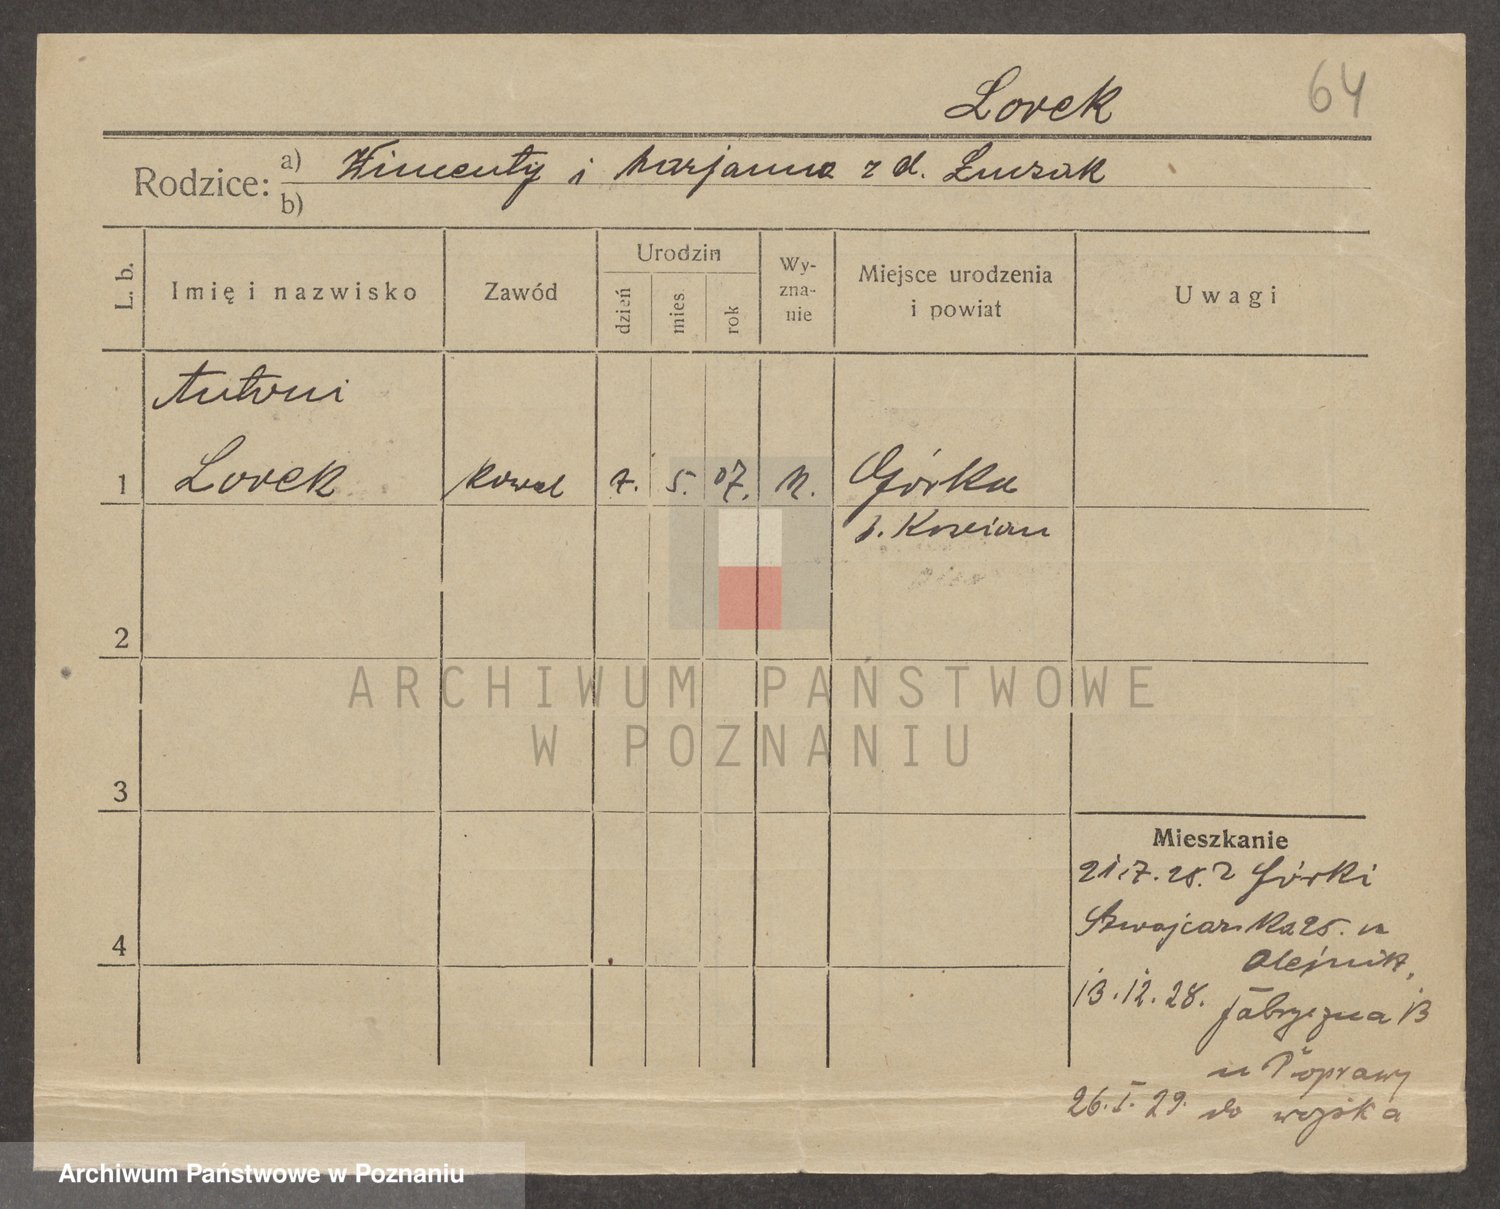 Lorek
64
Rodzice:
a) Wincenty i Marjanna z d.
b)
L. b.
Imię i nazwisko
Zawód
Urodzin
dzień
mies.
rok
Wy-
zna-
nie
Miejsce urodzenia
i powiat
Uwagi
Antoni
1 Lorek kowal 7. 5. 07. Górka
p. Kościan
2
3
4
Mieszkanie
21.7.28. z Górki
Szwajcarska 25. u
Olejnik,
13.12.28. Fabryczna 13
u Poprawy
26.I.29. do wojska
ARCHIWUM PAŃSTWOWE
W POZNANIU
Archiwum Państwowe w Poznaniu